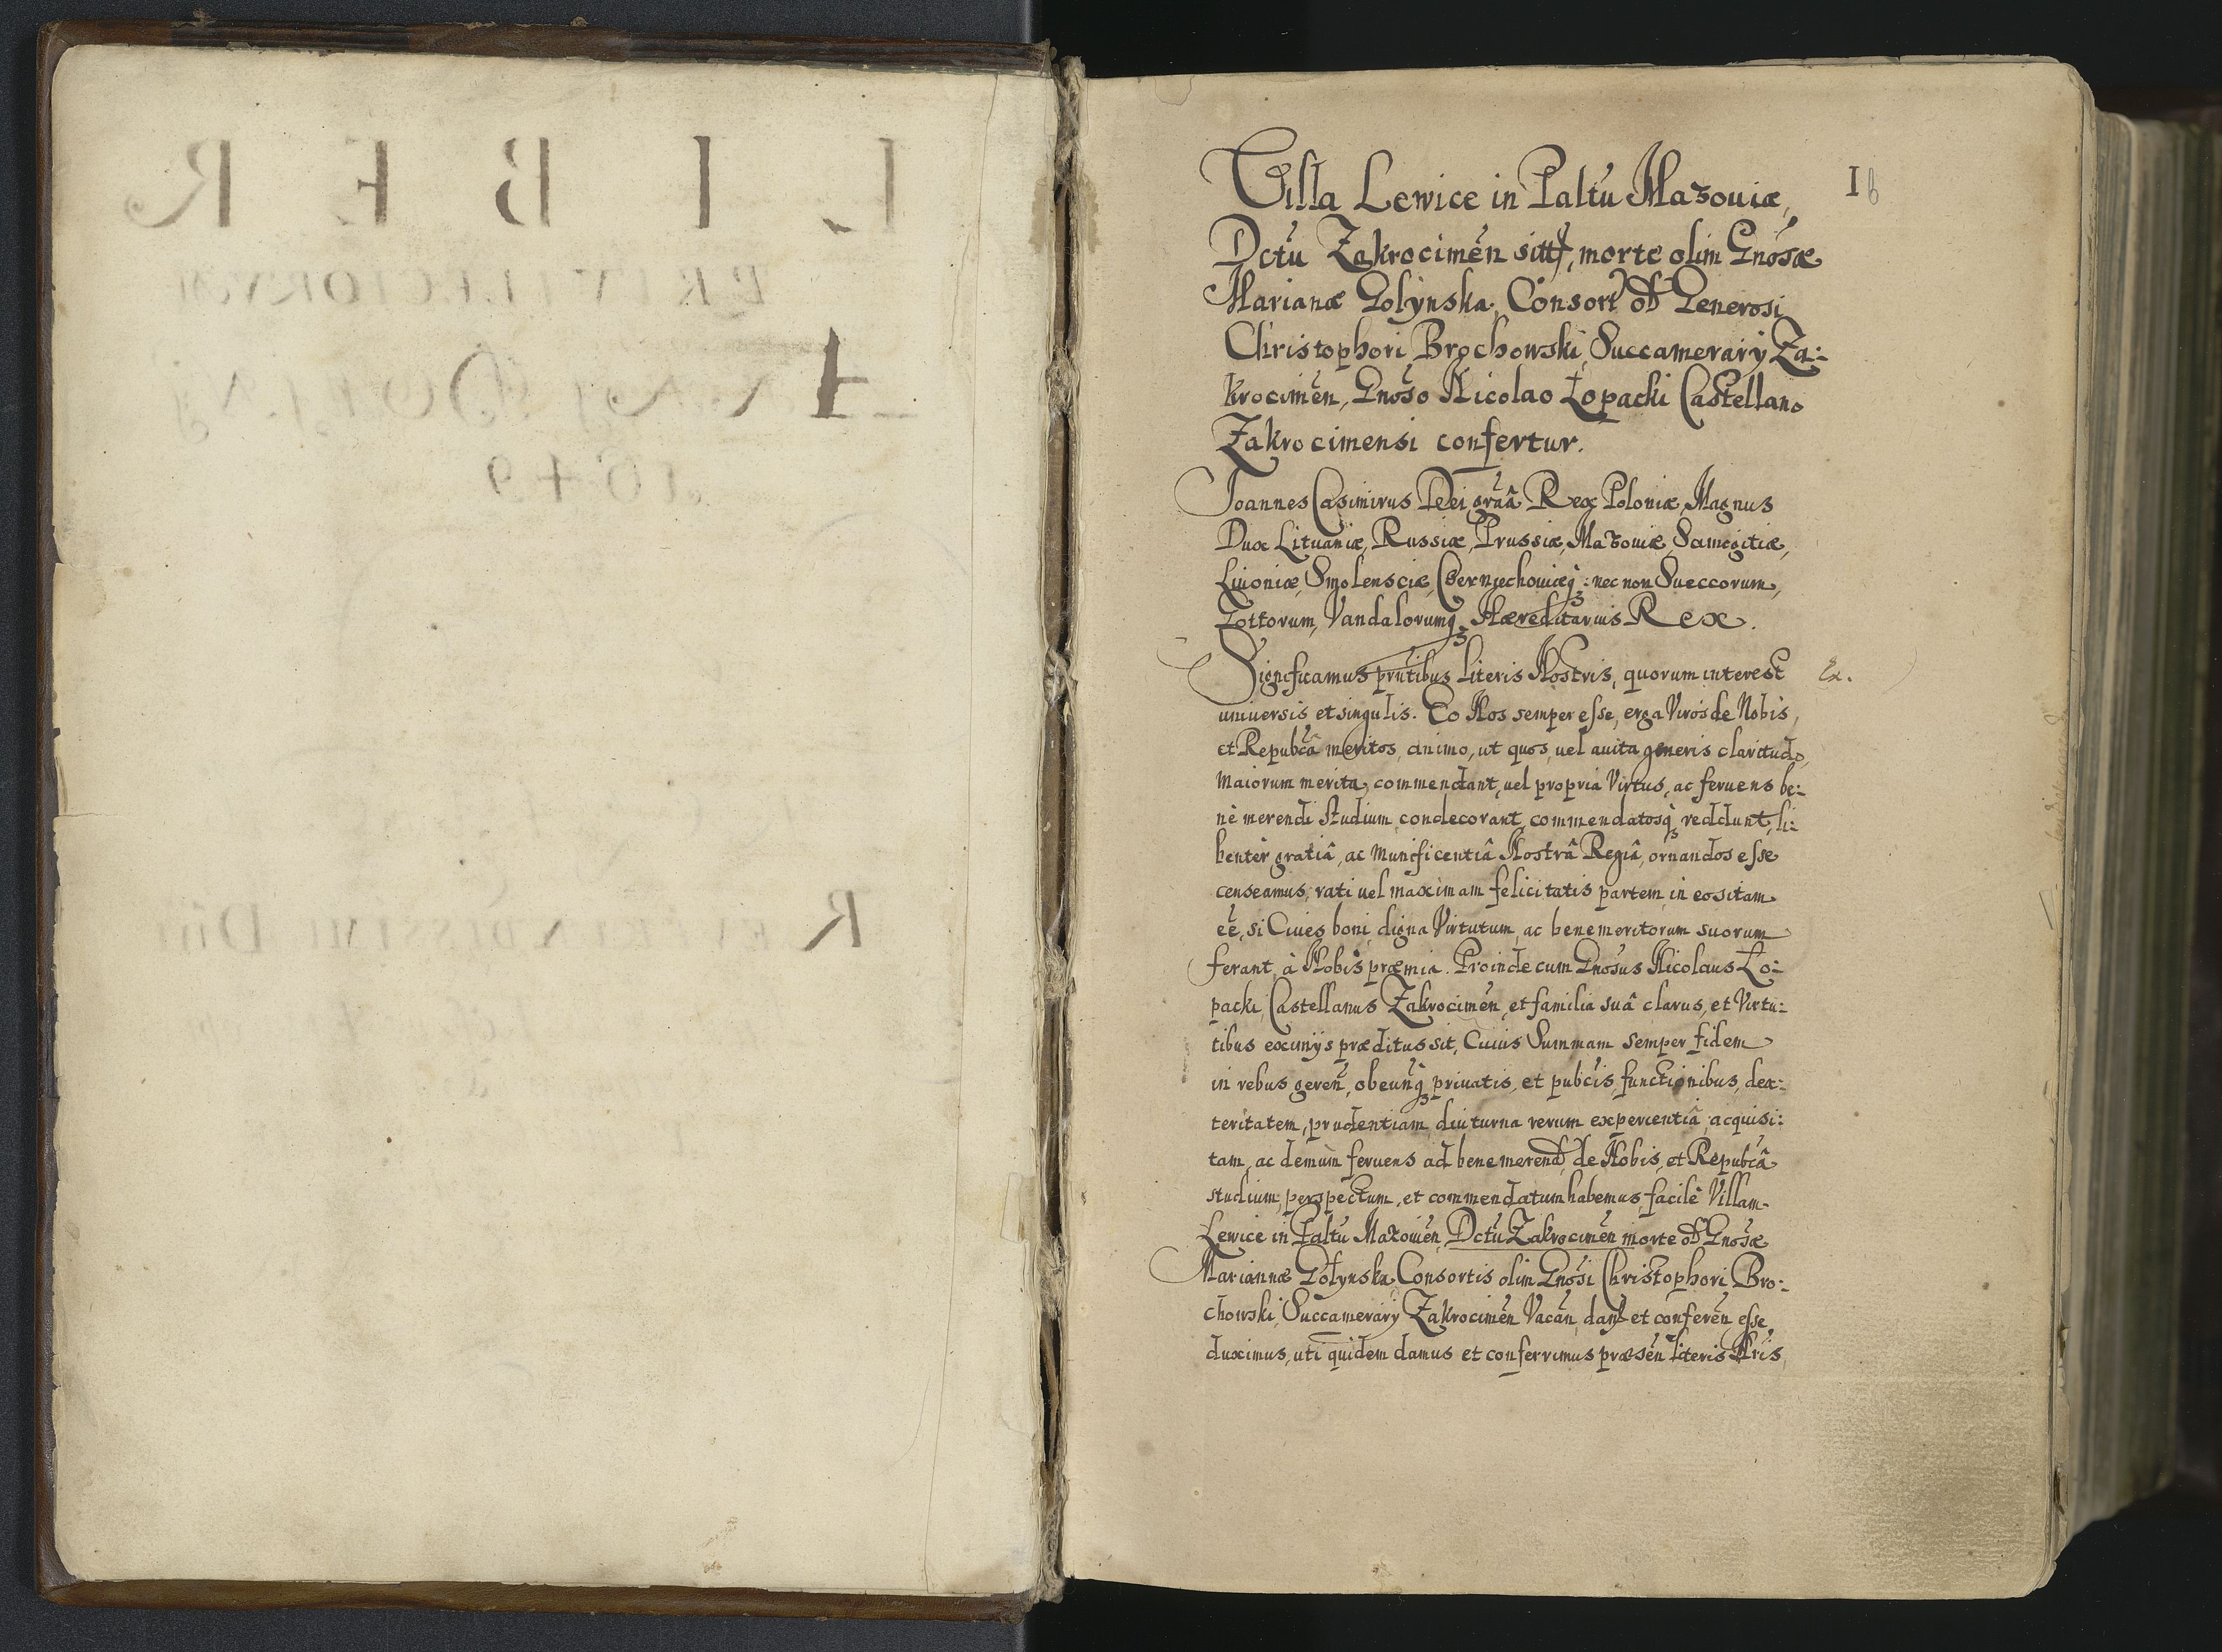 L I B E R
PRIVILEGIORVM
1649
Villa Lewice in Paltu Mazouiæ,
I
Dctu Zakrocimen sitt, morte olim Gnosæ
Marianæ Golynska, Consort olim Generosi
Christophori Brochowski, Succamerarÿ Za:
krocimen, Gnoso Nicolao Łopacki Castellano
Zakrocimensi confertur.
Joannes Casimirus Dei graâ Rex Poloniæ, Magnus
Dux Lituaniæ, Russiæ, Prussiæ, Mazouiæ, Samogitiæ,
Liuoniæ, Smolensciæ, Czerniechouiæq: nec non Sueccorum,
Gottorum, Vandalorumq, Hæreditarius Rex.
Significamus pntibus literis Nostris, quorum interest
Ex.
uniuersis et singulis. Eo Nos semper esse, erga Viros de Nobis,
et Republcâ meritos, animo, ut quos, uel auita generis claritudo,
maiorum merita, commendant, uel propria Virtus, ac feruens be:
nè merendi Studium, condecorant, commendatosq, reddunt, li:
benter gratiâ, ac munificentiâ Nostrâ Regiâ, ornandos esse
censeamus, rati uel maximam felicitatis partem, in eo sitam
eê, si Ciues boni, digna Virtutum, ac benemeritorum suorum
ferant, à Nobis præmia. Proinde cum Gnosus Nicolaus Ło:
packi, Castellanus Zakrocimen, et familia suâ clarus, et Virtu:
tibus eximÿs præditus sit, Cuius Summam semper fidem
in rebus geren, obeunq, priuatis, et pubcis, functionibus, dex:
teritatem, prudentiam, diuturna rerum experientiâ, acquisi:
tam, ac demum feruens ad bene merend, de Nobis, et Republcâ
studium, perspectum, et commendatum habemus, facilè Villam
Lewice in Paltu Mazouien, Dctu Zakrocimen morte olim Gnosæ
Mariannæ Gołynska, Consortis olim Gnosi Christophori Bro:
chowski, Succamerarÿ Zakrocimen Vacan, dand et conferen esse
duximus, uti quidem damus et conferrimus præsen literis Nris,